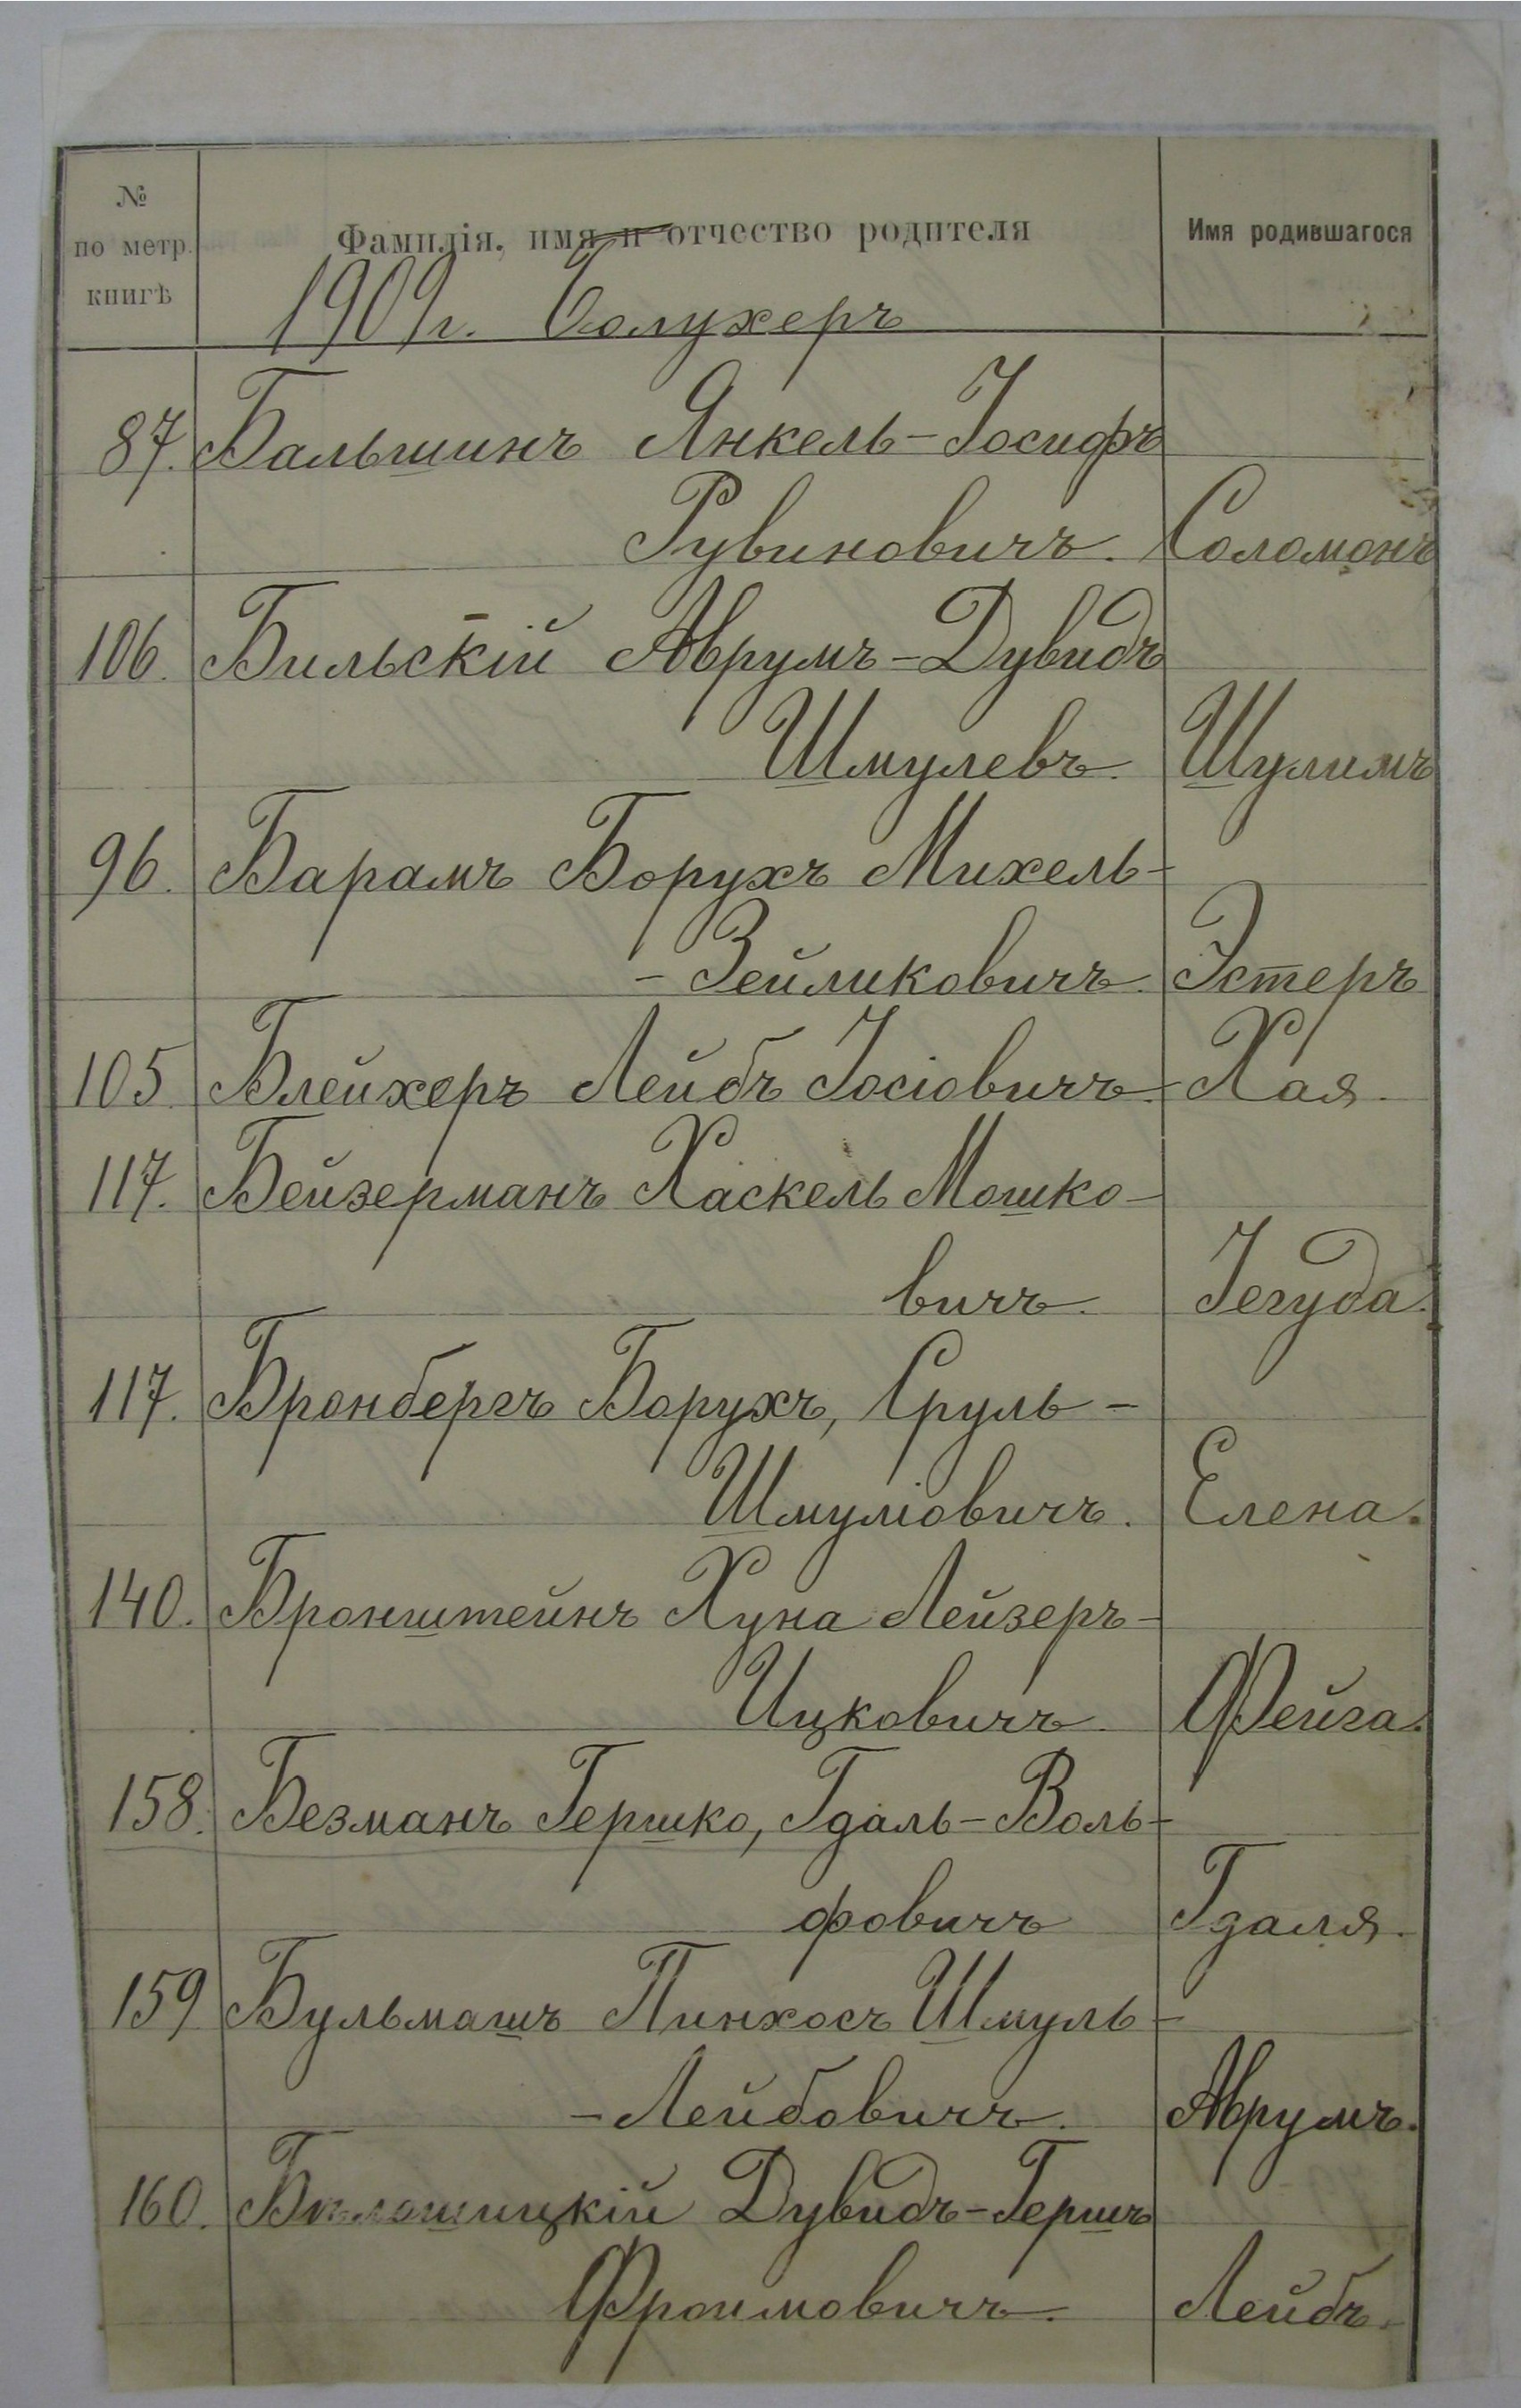 №
по метр.
книгѣ
Фамилія, имя и отчество родителя
Имя родившагося
1909 г.
87. Бальшинъ Янкель-Іосифъ
Рувиновичъ. Соломонъ
106. Бильскій Аврумъ-Дувидъ
Шмулевъ. Шулимъ
96. Барамъ Борухъ Михель-
-Зейликовичъ. Эстеръ
105. Блейхеръ Лейбъ Іосіовичъ. Хая.
117. Бейзерманъ Хаскель Мошко-
вичъ. Іегуда.
117. Бронбергъ Борухъ, Сруль-
Шмуліовичъ. Елена.
140. Бронштейнъ Хуна Лейзеръ-
Ицковичъ. Фейга.
158. Безманъ Гершко, Гдаль-Воль-
фовичъ Гдаля.
159 Бульмашъ Пинхосъ Шмуль-
-Лейбовичъ. Аврумъ.
160. Дувидъ-Гершъ
Фроимовичъ. Лейбъ.